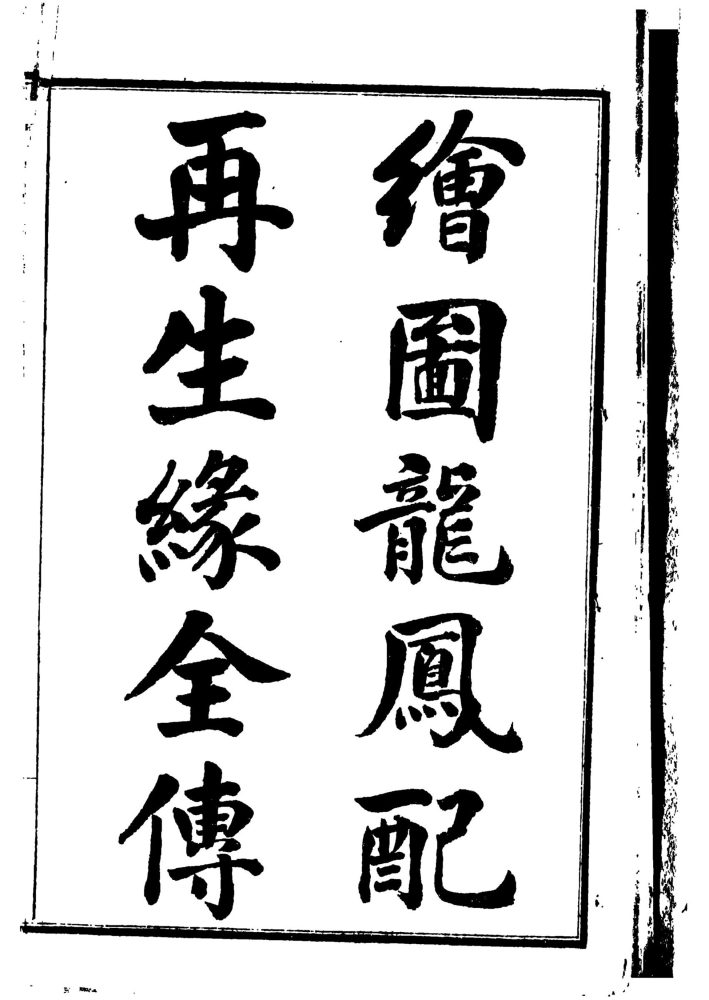 繪圖龍鳳配
再生緣全傳